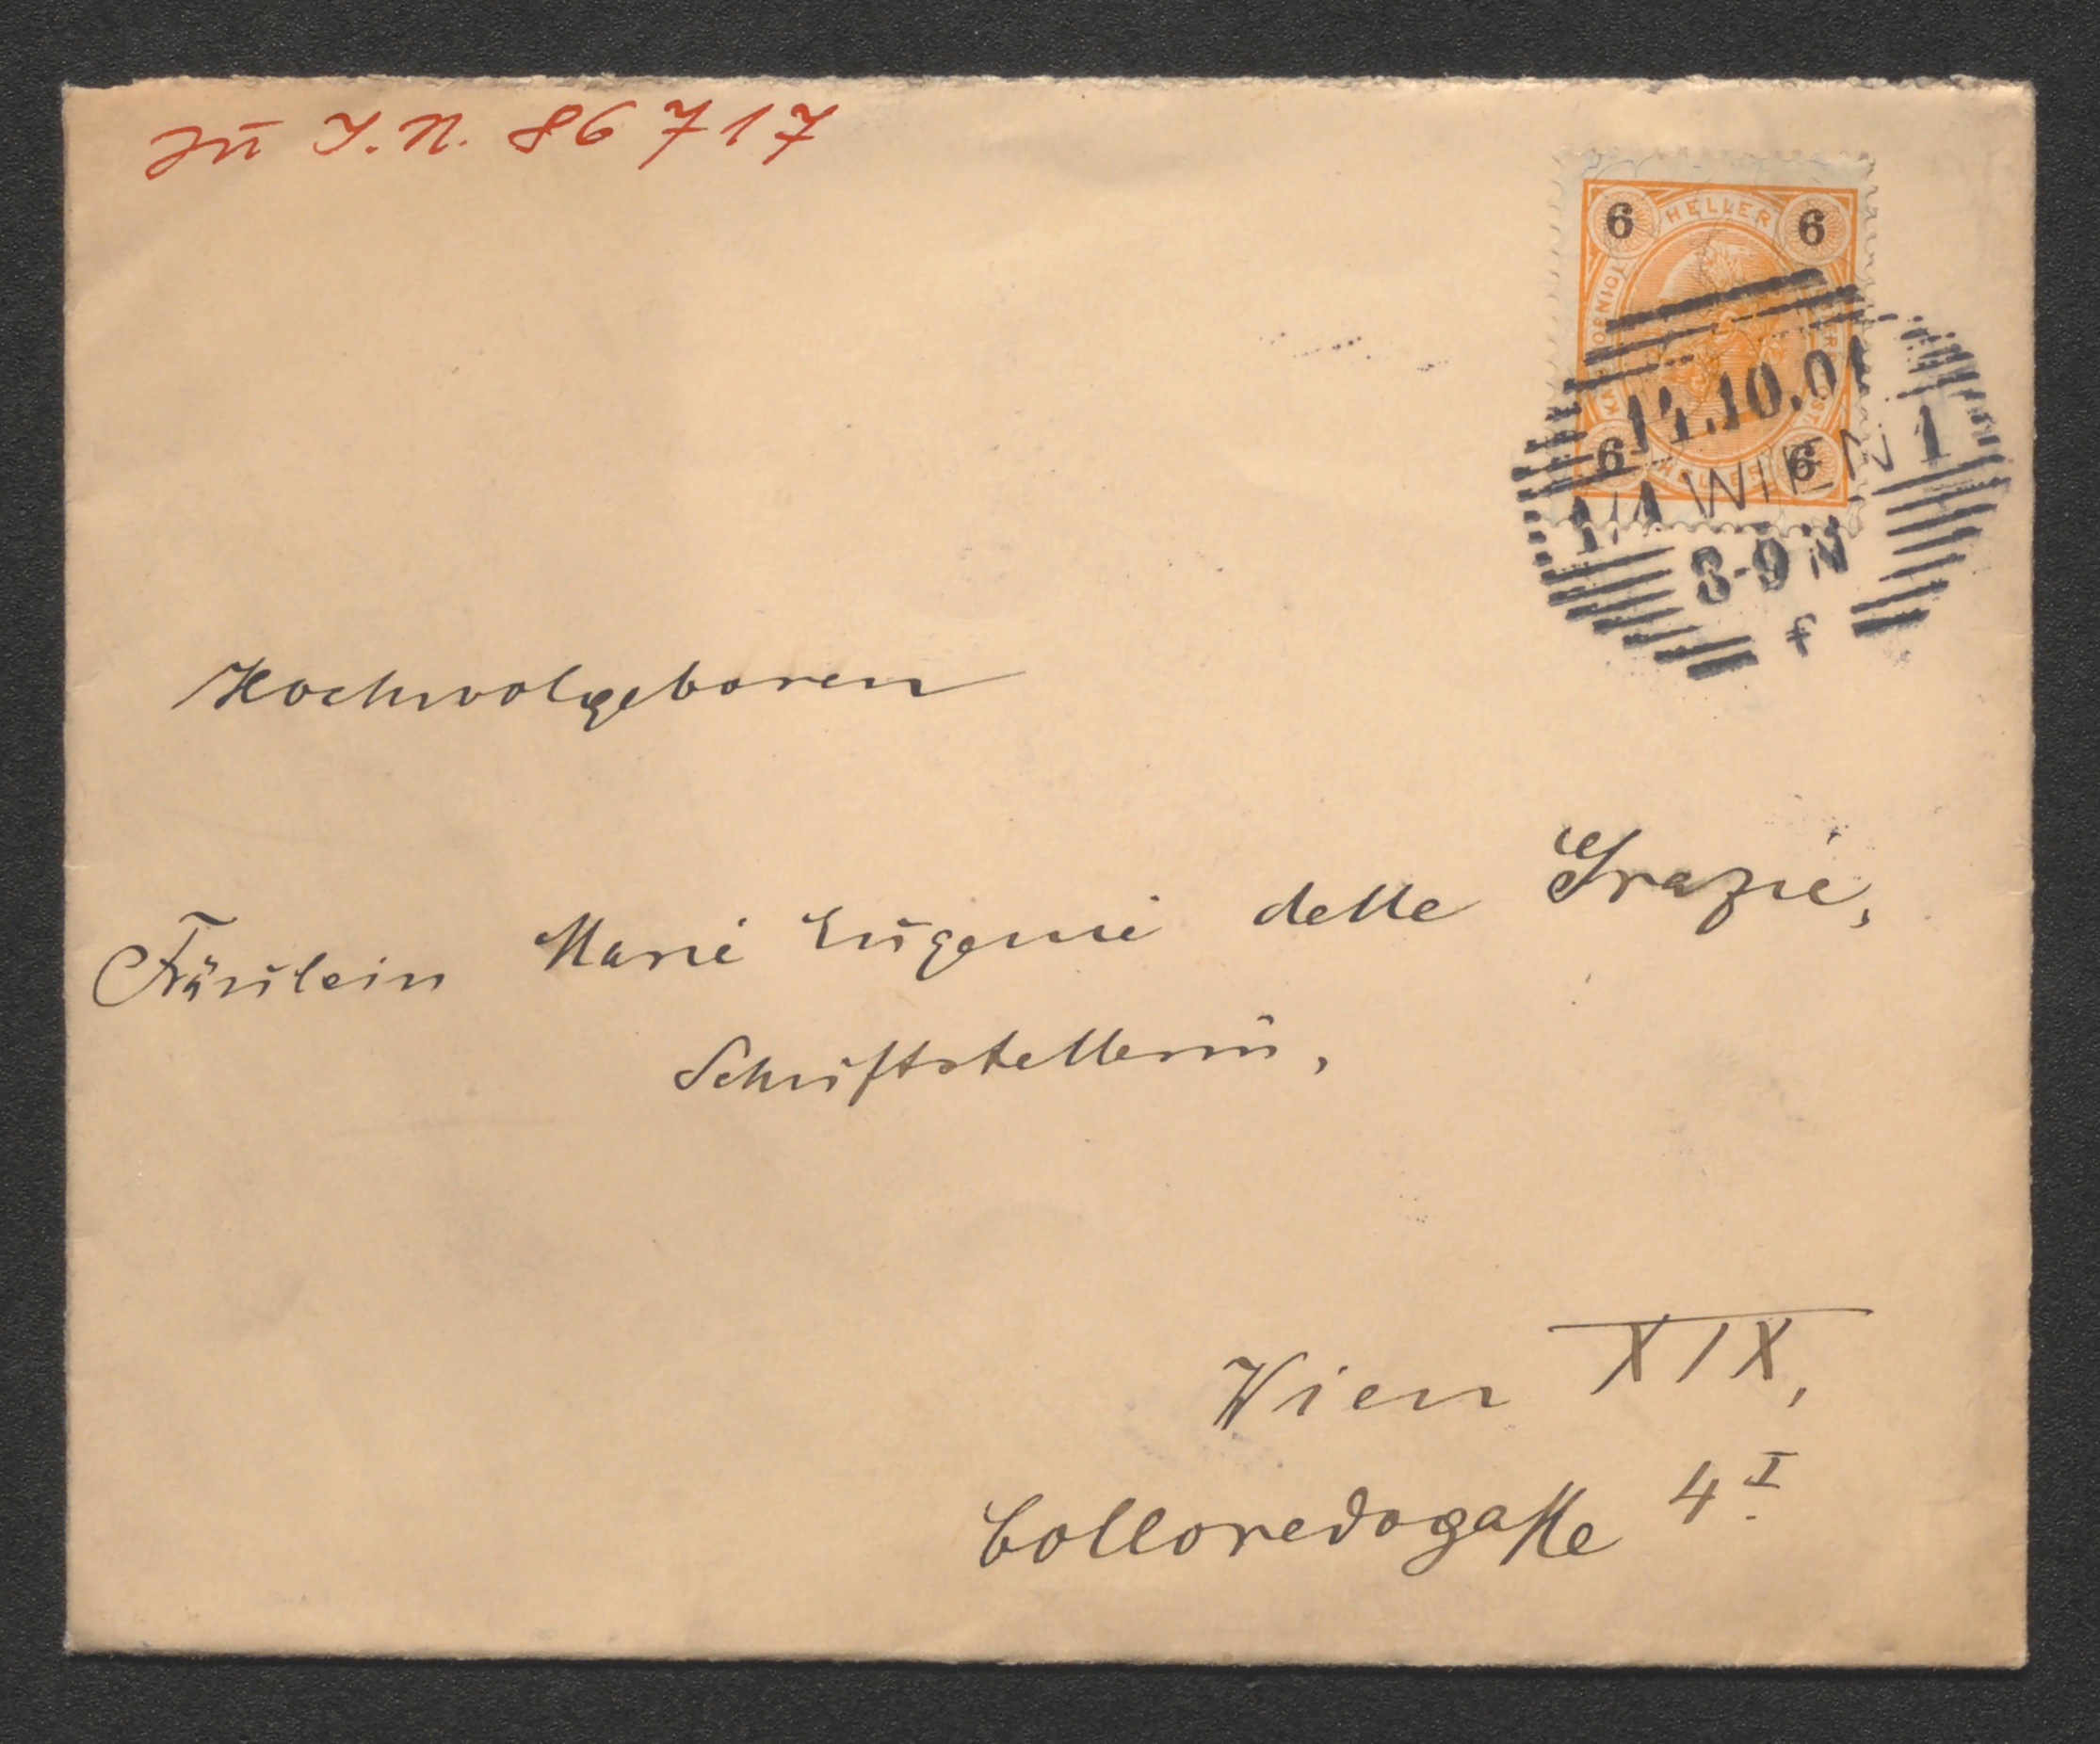 zu I.N. 86717
6 HELLER 6
14.10.01
6 6
1/1 WIEN 1
8-9N
f
Hochwolgeboren
Fräulein Marie Eugenie delle Grazie,
Schriftstellerin,
Wien XIX,
Colloredogasse 4 I.